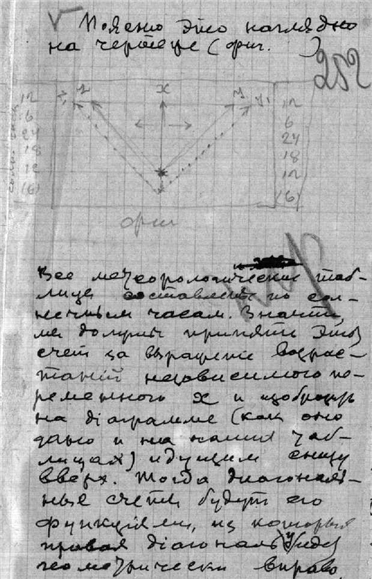 Поясню это наглядно
на чертеже (фиг. )
252
x
y y₁
12
6
24
18
12
(6)
12
6
24
18
12
(6)
фиг
Все метеорологические таб-
лицы составлены по сол-
нечным часам. Значит,
мы должны принять этот
счет за выражение возрас-
таний независимого пе-
ременного x и изобразить
на діаграмме (как оно
дано и на наших таб-
лицах) идущим снизу
вверх. Тогда диагональ-
ные счеты будут его
функциями, из которых
правая діагональ будет
геометрически вправо